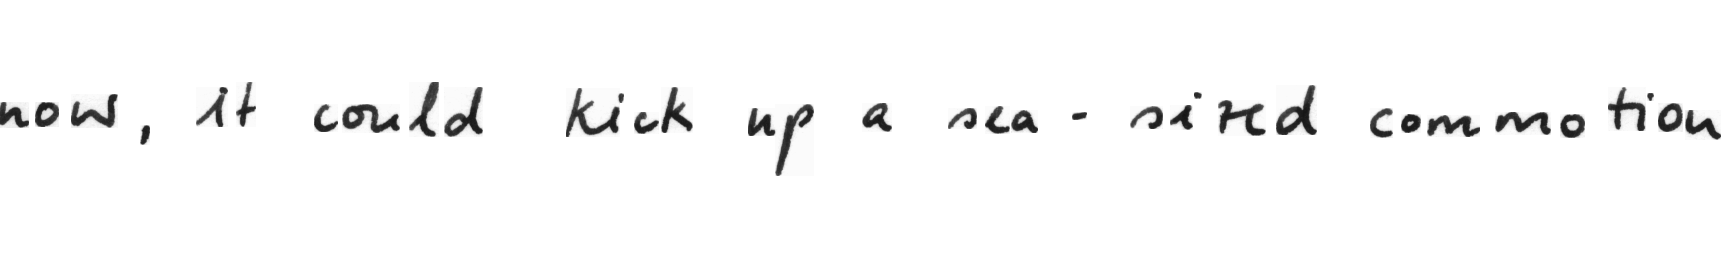 now, it could kick up a sea-sized commotion